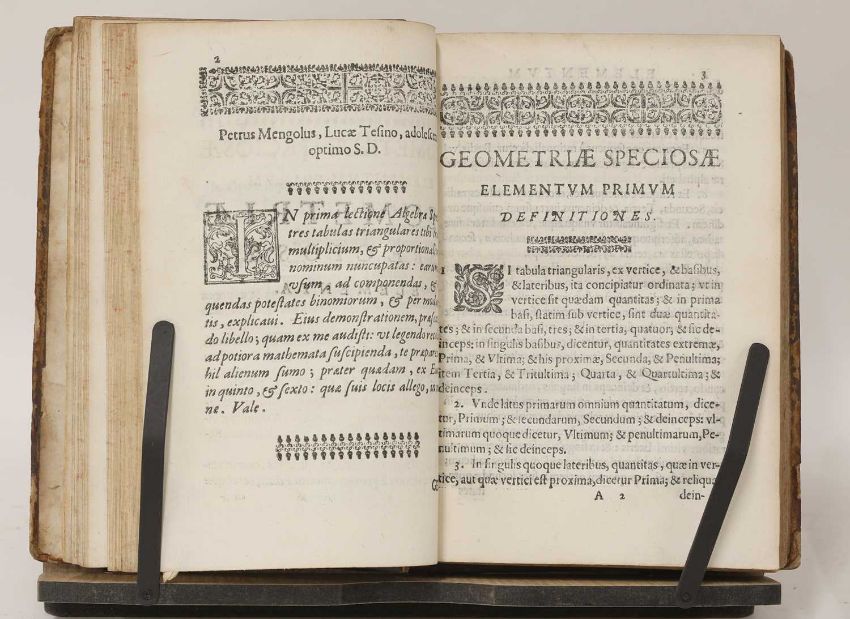 2
Petrus Mengolus, Lucæ Tesino, adolesce
optimo S. D.
IN prima lectione Algebræ Spe
tres tabulas triangulares tibi
multiplicium, & proportional
nominum nuncupatas: earum
usum, ad componendas, &
quendas potestates binomiorum, & per mul
tis, explicaui. Eius demonstrationem, præs
do libello; quam ex me audisti: vt legendo re
ad potiora mathemata suscipienda, te præpar
hil alienum sumo; præter quædam, ex E
in quinto, & sexto: quæ suis locis allego,
ne. Vale.
3
GEOMETRIÆ SPECIOSÆ
ELEMENTVM PRIMVM
DEFINITIONES.
1 SI tabula triangularis, ex vertice, & basibus,
& lateribus, ita concipiatur ordinata; vt in
vertice sit quædam quantitas; & in prima
basi, statim sub vertice, sint duæ quantita-
tes; & in secunda basi, tres; & in tertia, quatuor; & sic de-
inceps: in singulis basibus, dicentur, quantitates extremæ,
Prima, & Vltima; & his proximæ, Secunda, & Penultima;
item Tertia, & Tritultima; Quarta, & Quartultima; &
deinceps.
2. Vnde latus primarum omnium quantitatum, dice-
tur, Primum; & secundarum, Secundum; & deinceps: vl-
timarum quoque dicetur, Vltimum; & penultimarum, Pe-
nultimum; & sic deinceps.
3. In singulis quoque lateribus, quantitas, quæ in ver-
tice, aut quæ vertici est proxima, dicetur Prima; & reliquæ
A 2 dein-